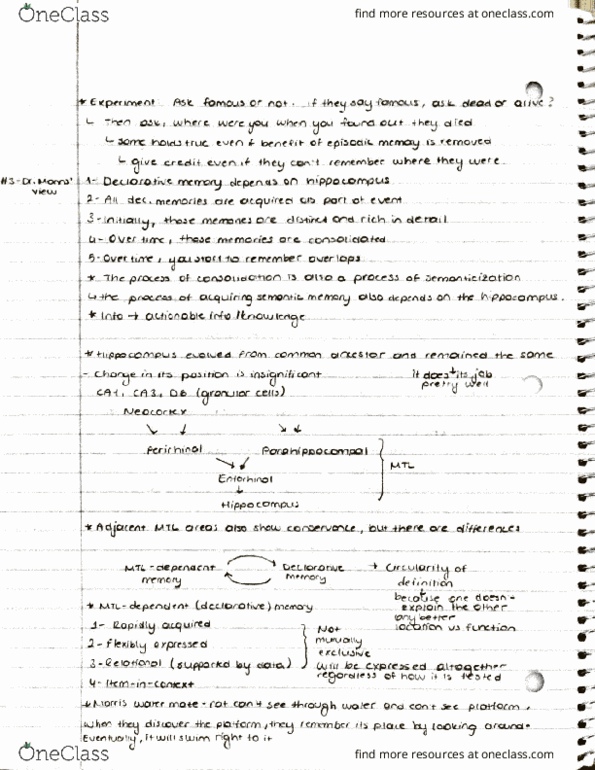 OneClass
find more resources at oneclass.com
* Experiment Ask famous or not. if they say famous, ask dead or alive?
↳ Then ask, where were you when you found out they died
↳ same holds true even if benefit of episodic memory is removed
↳ give credit even if they can't remember where they were
#3-Dr. Manns' view
1- Declarative memory depends on hippocampus
2- All dec. memories are acquired as part of event
3- initially, those memories are distinct and rich in detail
4- Over time, those memories are consolidated
5- Over time, you start to remember overlaps
* The process of consolidation is also a process of semanticization
↳ the process of acquiring semantic memory also depends on the hippocampus.
* Info → actionable info / knowledge
* Hippocampus evolved from common ancestor and remained the same
- Change in its position is insignificant
it does its job
pretty well
CA1, CA3, DG (granular cells)
Neocortex
Perirhinal Parahippocampal
Entorhinal
MTL
Hippocampus
* Adjacent MTL areas also show conservance, but there are differences
MTL-dependent memory
Declarative memory
→ Circularity of definition
because one doesn-
explain the other
any better
location vs function
* MTL-dependent (declarative) memory
1- Rapidly acquired
2- flexibly expressed
3- Relational (supported by data)
4- Item-in-context
Not
mutually
exclusive
will be expressed altogether
regardless of how it is tested
* Morris water maze - rat can't see through water and can't see platform,
when they discover the platform, they remember its place by looking around.
Eventually, it will swim right to it
OneClass
find more resources at oneclass.com